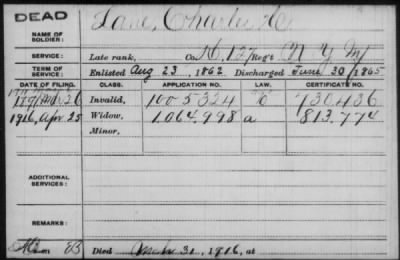 DEAD
NAME OF SOLDIER: Lane, Charles H.
SERVICE: Late rank, Co. H, 127 Regt N Y
TERM OF SERVICE: Enlisted Aug 23, 1862 Discharged June 30, 1865
DATE OF FILING. CLASS. APPLICATION NO. LAW. CERTIFICATE NO.
Invalid, 1005324 730436
1916, Apr 25 Widow, 1.064.998 a 813.774
Minor,
ADDITIONAL SERVICES:
REMARKS:
Died 31, 1916, at